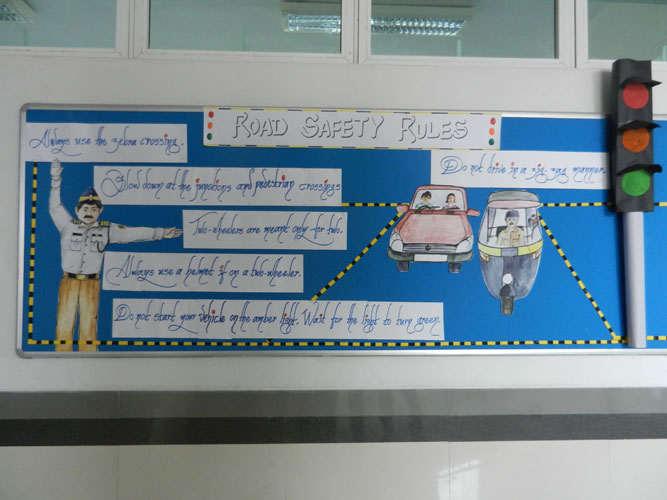 ROAD SAFETY RULES
Always use the zebra crossing.
Slow down at the junctions and pedestrian crossings
Two-wheelers are meant only for two.
Always use a helmet if on a two-wheeler.
Do not start your vehicle on the amber light. Wait for the light to turn green.
Do not drive in a zig-zag manner.